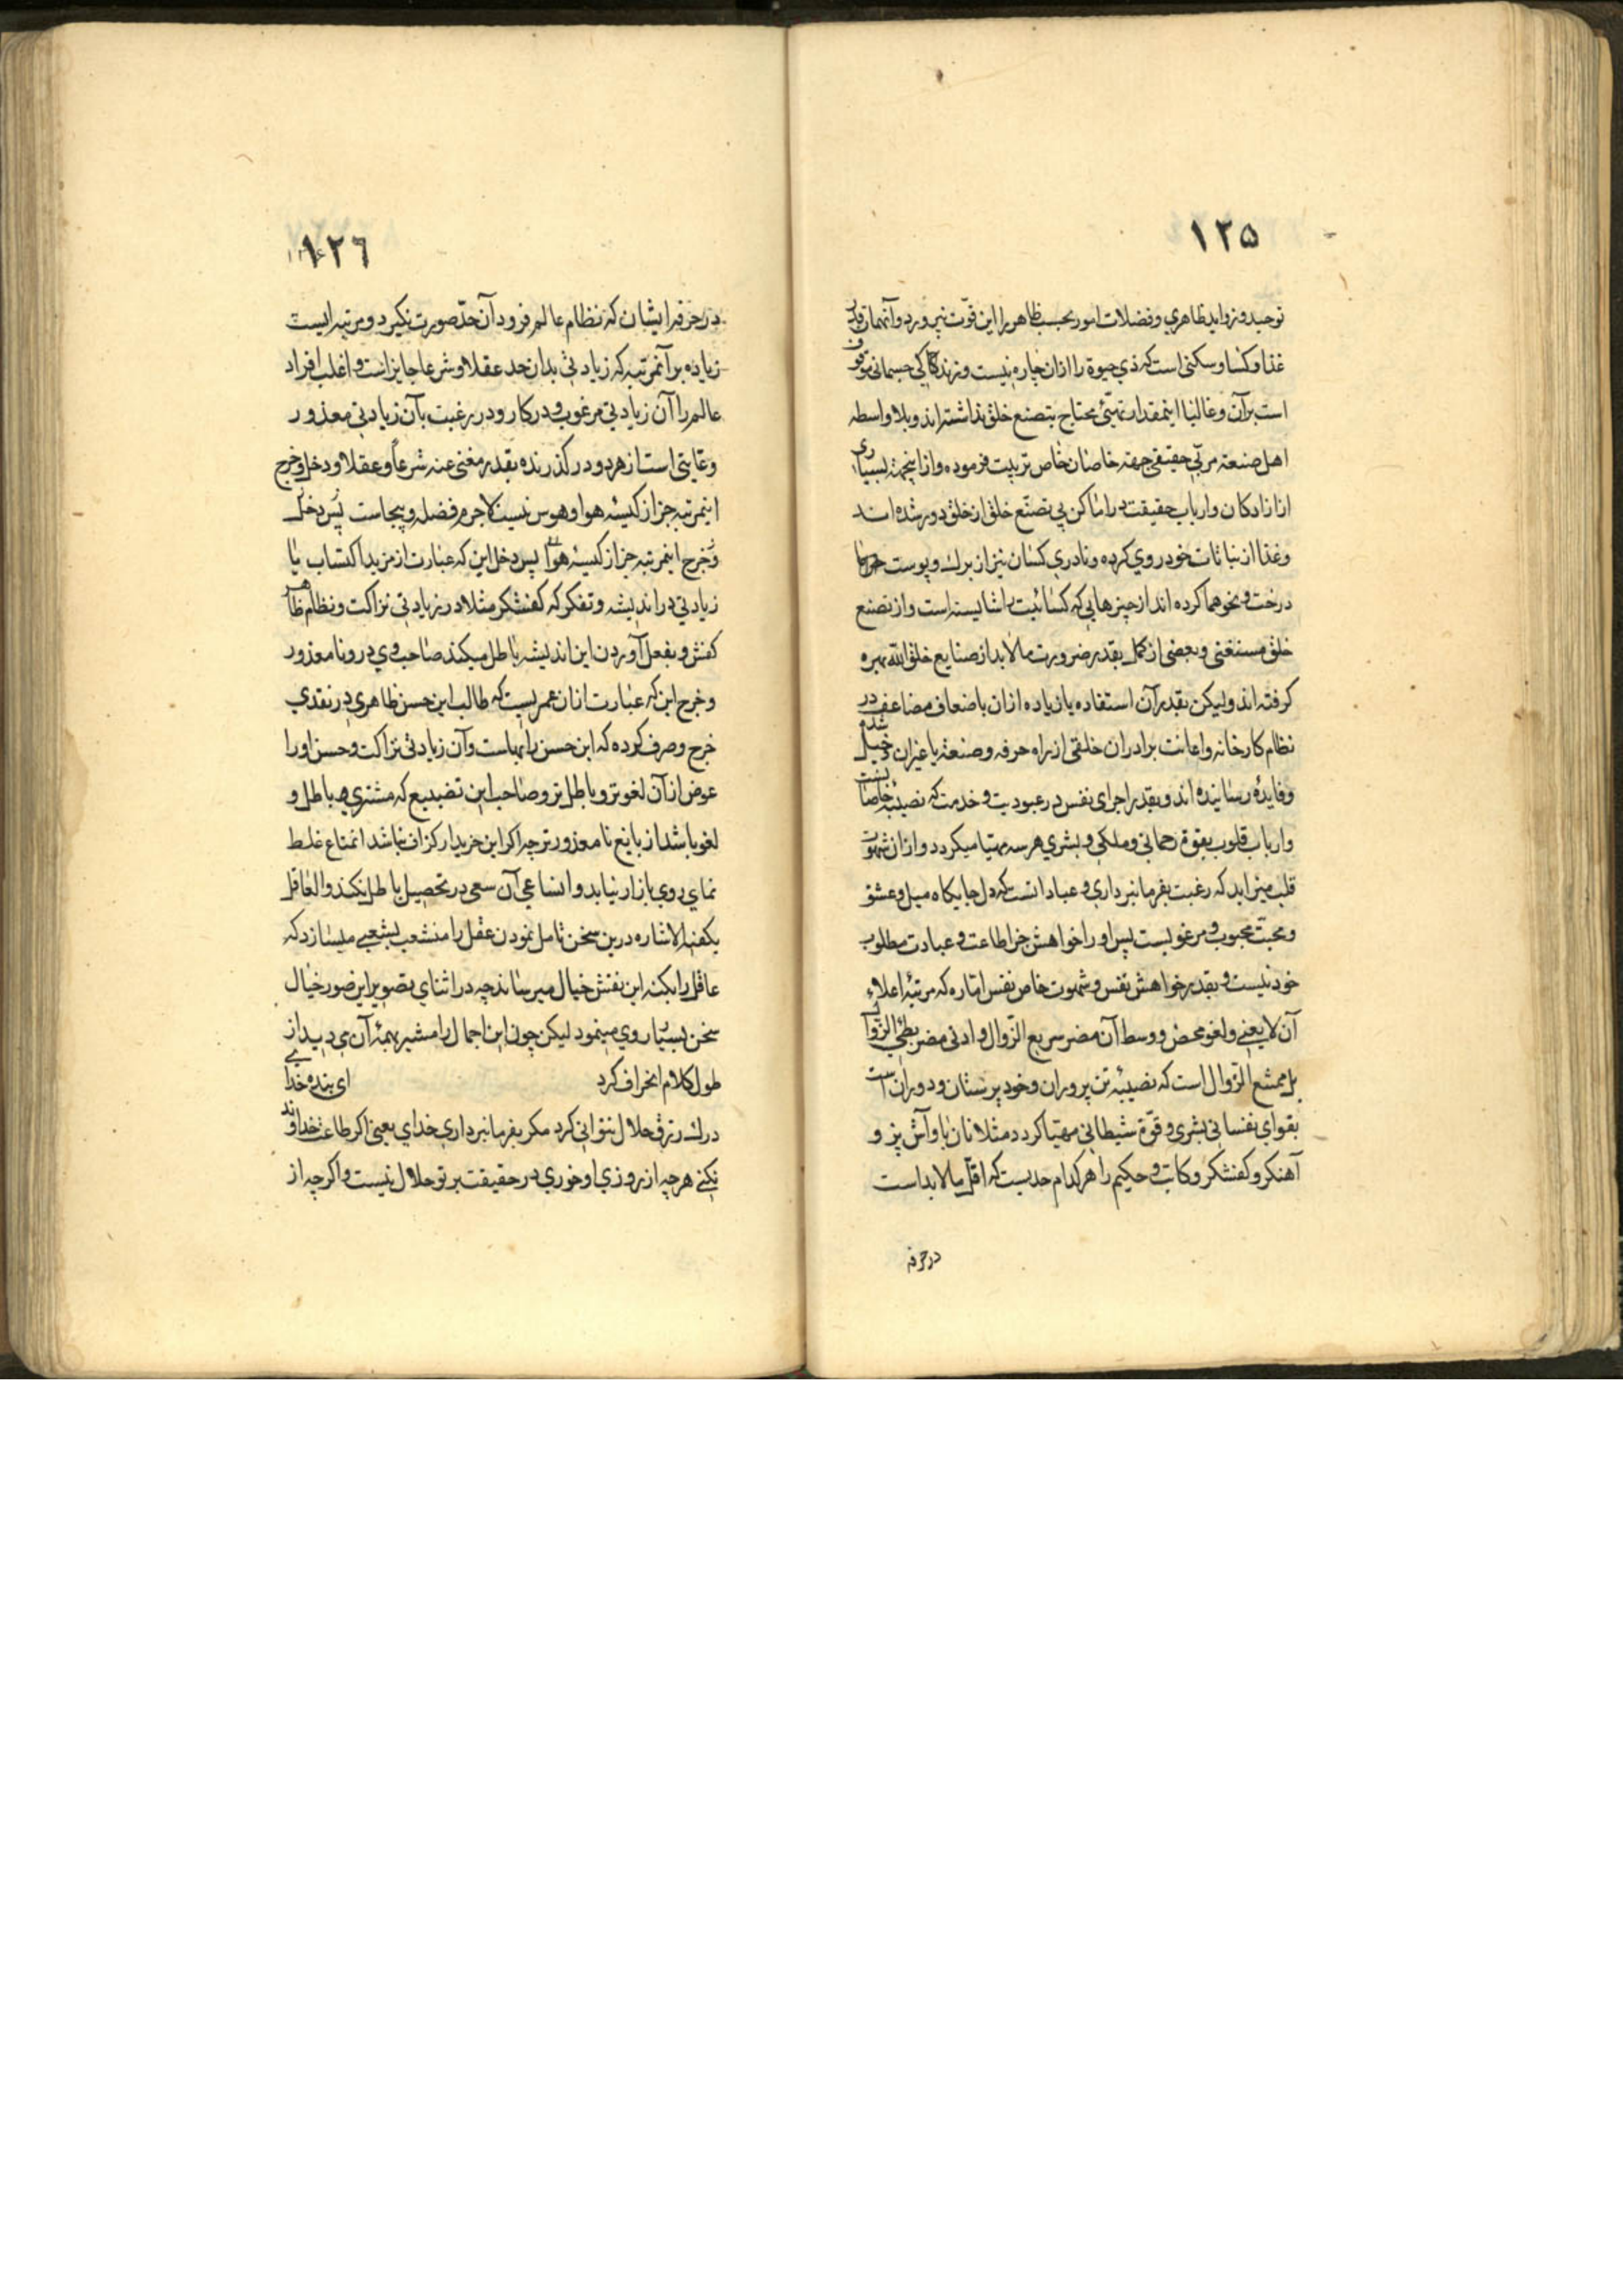 ۱۲۵
توحید و زواید ظاهری و فضلات امور بحسب ظاهر را این قوت نیرورد و آنهمان قدر
غذا و کسا و سکنی است که ذی حیوة را ازان چاره نیست و زندگی جسمانی موقوف
است بر آن و غالبا اینمقدار تهیئ محتاج بتصنع خلق نذاشته اند و بلا واسطه
اهل صنعة مربی حقیقی جهة خاصان خاص تربیت فرموده و ازاینجهة بسیاری
از ازادکان و ارباب حقیقت در اماکن بی تصنّع خلق از خلق دور شده اند
وغذا از نباتات خودروی کرده و نادری کسان نیز از برك و پوست
درخت و نحوهما کرده اند از چیزهایی که کسائیت را شایسته است و از تصنع
خلق مستغنی و بعضی از کمل بقدر ضرورت مالابد از صنایع خلق الله بهره
کرفته اند ولیکن بقدر آن استفاده یا زیاده ازان باضعاف مضاعف در
نظام کارخانه و اعانت برادران خلقتی از راه حرفه و صنعة یا غیران دخیل شده
و فایده رسانیده اند و بقدر اجرای نفس در عبودیت و خدمت که نصیبه خاصان
وارباب قلوب بقوة رحمانی و ملکی و بشری هرسه مهیا میکردد و ازان شهوت
قلب میزاید که رغبت بفرمانبرداری و عبادانست که دل جایکاه میل و عشق
و محبّت محبوب و مرغوبست پس او را خواهش جز اطاعت و عبادت مطلوب
خود نیست و بقدر خواهش نفس و شهوت خاص نفس اماره که مرتبۀ اعلاء
آن لایعنی و لغو محض و وسط آن مضر سریع الزّوال و ادنی مضر بطئ الزّوال
بل ممتنع الزّوال است که نصیبۀ تن پروران و خود پرستان و دوران است
بقوای نفسانی بشری و قوّة شیطانی مهیّا کردد مثلا نان باو آش پز و
آهنکر و کفشکر و کاتب و حکیم را هر کدام حدیست که اقل مالابد است
در حرفه
۱۲۶
در حرفۀ ایشان که نظام عالم فرود آن حدّ صورت نکیرد و مرتبه ایست
زیاده بر آنمرتبه که زیادتی بدان حد عقلا و شرعا جایز است و اغلب افراد
عالم را آن زیادتی مرغوب و در کار و در رغبت بآن زیادتی معذور
و غایتی است از هر دو در کذرنده بقدر مغنی عنه شرعاً و عقلا و دخل و خرج
اینمرتبه جز از کیسۀ هوا و هوس نیست لاجرم فضله و بیجاست پس دخل
و خرج اینمرتبه جز از کیسۀ هوا پس دخل این که عبارت از مزید اکتساب یا
زیادتی در اندیشه و تفکر که کفشکر مثلا در زیادتی نزاکت و نظام ظاهر
کفش و بفعل آوردن این اندیشه باطل میکند صاحب وی درو نامعذور
و خرج این که عبارت ازان عمریست که طالب این حسن ظاهری در نقدی
خرج و صرف کرده که این حسن را بهاست و آن زیادتی نزاکت و حسن اورا
عوض از آن لغوتر و باطل تر و صاحب این تضییع که مشتری باطل و
لغو باشد از بایع نامعذورتر چه اکر این خریدار کزاف نباشد انمتاع غلط
نمای روی بازار نیابد و انساعی آن سعی در تحصیل باطل نکند والعاقل
یکفیه الاشاره درین سخن تامل نمودن عقل را منشعب بشعبی میسازد که
عاقل را بکنه این نقش خیال میرساند چه در اثنای تصویر این صور خیال
سخن بسیار روی مینمود لیکن چون این اجمال را مشیر بهمۀ آن می دید از
طول کلام انحراف کرد ای بنده خدای
درك رزق حلال نتوانی کرد مکر بفرمانبرداری خدای یعنی اکر طاعت خداوند
نکنی هرچه از روزی او خوری در حقیقت بر تو حلال نیست و اکرچه از